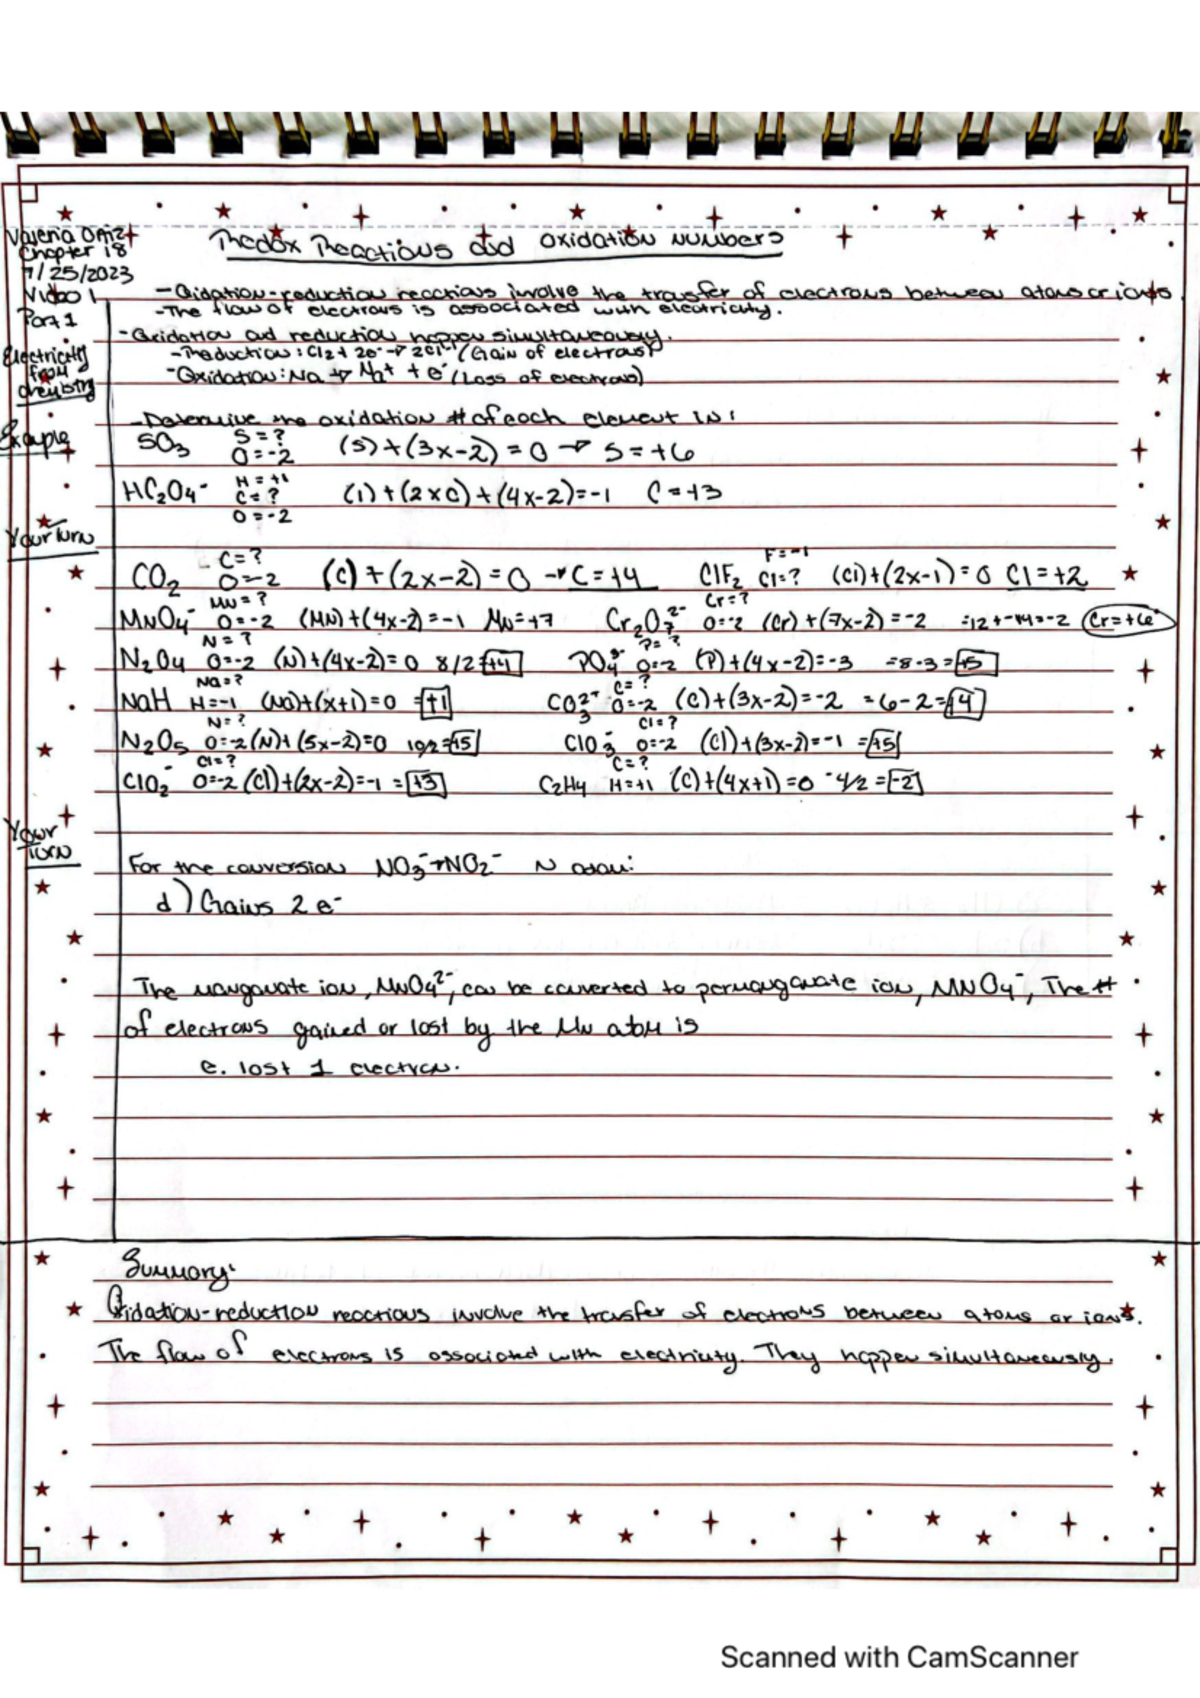 Valeria Ortiz
Chapter 18
7/25/2023
Video 1
Part 1
Redox Reactions and oxidation numbers
-Oxidation-reduction reactions involve the transfer of electrons between atoms or ions.
-The flow of electrons is associated with electricity.
-Oxidation and reduction happen simultaneously.
Electricity
from
chemistry
-Reduction: Cl₂ + 2e⁻ → 2Cl⁻ (Gain of electrons)
-Oxidation: Na → Na⁺ + e⁻ (Loss of electrons)
-Determine the oxidation # of each element in:
Example
SO₃ S=? O=-2 (S)+(3x-2)=0 → S=+6
HC₂O₄⁻ H=+1 C=? O=-2 (1)+(2xC)+(4x-2)=-1 C=+3
Your turn
CO₂ C=? O=-2 (C)+(2x-2)=0 → C=+4 ClF₂ F=-1 Cl=? (Cl)+(2x-1)=0 Cl=+2
MnO₄⁻ Mn=? O=-2 (Mn)+(4x-2)=-1 Mn=+7 Cr₂O₇²⁻ Cr=? O=-2 (Cr)+(7x-2)=-2 =12+-14=-2 Cr=+6
N₂O₄ N=? O=-2 (N)+(4x-2)=0 8/2=+4 PO₄³⁻ P=? O=-2 (P)+(4x-2)=-3 =8-3=+5
NaH Na=? H=-1 (Na)+(x+1)=0 =+1 CO₃²⁻ C=? O=-2 (C)+(3x-2)=-2 =6-2=+4
N₂O₅ N=? O=-2 (N)+(5x-2)=0 10/2=+5 ClO₃⁻ Cl=? O=-2 (Cl)+(3x-2)=-1 =+5
ClO₂⁻ Cl=? O=-2 (Cl)+(2x-2)=-1 =+3 C₂H₄ C=? H=+1 (C)+(4x+1)=0 -4/2=-2
Your
turn
For the conversion NO₃⁻→NO₂⁻ N atom:
d) Gains 2 e⁻
The manganate ion, MnO₄²⁻, can be converted to permanganate ion, MNO₄⁻, The #
of electrons gained or lost by the Mn atom is
e. lost 1 electron.
Summary:
Oxidation-reduction reactions involve the transfer of electrons between atoms or ions.
The flow of electrons is associated with electricity. They happen simultaneously.
Scanned with CamScanner